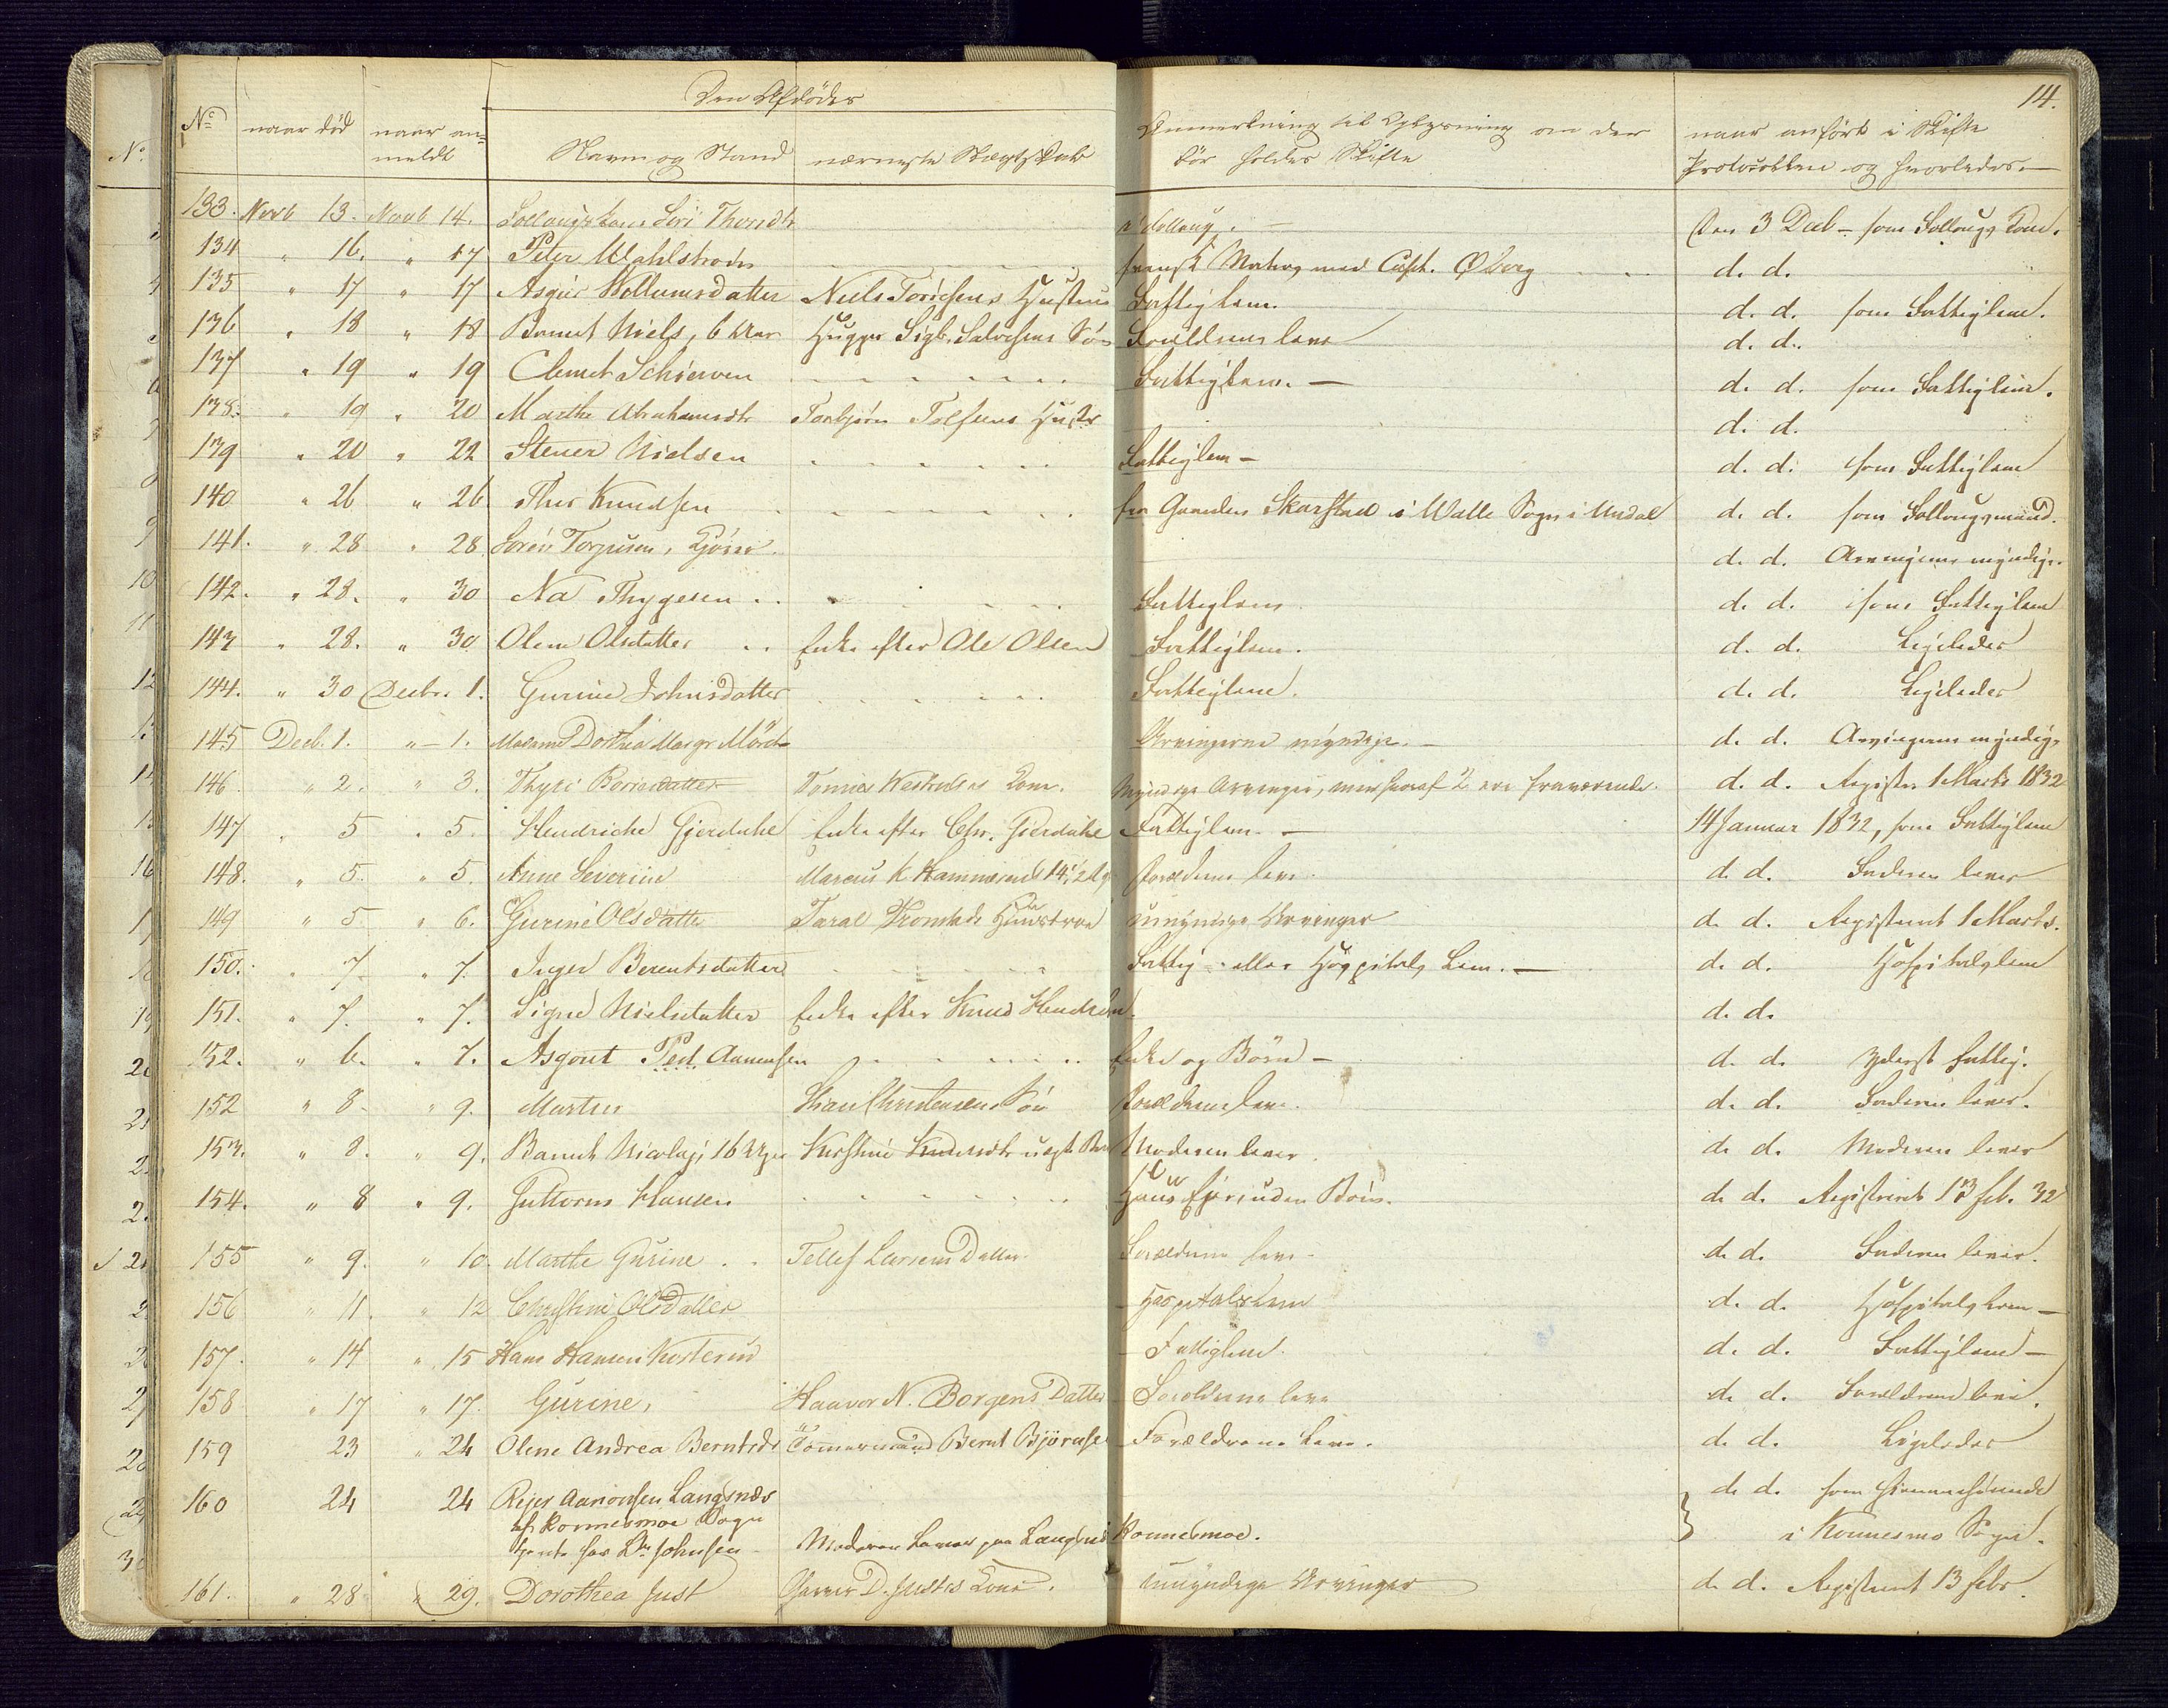 14.
Den Afdødes
No naar død naar an=meldt Navn og Stand nærmeste Slægtskab Anmerkning til Oplysning om der bør holdes Skifte naar anført i Skifte Protocollen og hvorledes.
133. Novb 13. Novb 14. Sollougskone Siri Thorsdtr i Solloug. — Den 3 Decb – som Sollougs Kone.
134 " 16. " 17 Peter Wahlstrøm svensk Matros med Capt. Øberg d. d.
135 " 17 " 17 Asgier Wollumsdatter Niels Torissens Hustrue Fattiglem. d. d. som Fattiglem.
136 " 18 " 18 Barnet Niels, 6 Aar Hugger Sigb. Salvesens Søn Forældrene leve d. d.
137 " 19 " 19 Clemet Schierven Fattiglem. — d. d. som Fattiglem.
138. " 19 " 20 Marthe Abrahamsdtr Torbjørn Tolfsens Hustr d. d.
139 " 20 " 22 Stener Nielsen Fattiglem – d. d. som Fattiglem
140 " 26 " 26 Thor Knudsen fra Gaarden Skarstad i Walle Sogn i Undal d. d. som Sollougsmand.
141. " 28 " 28 Søren Torjusen, d. d. Arvingerne myndige.
142. " 28. " 30 Na Thygesen Fattiglem d. d. som Fattiglem
143 " 28. " 30 Olene Olsdatter Enke efter Ole Olsen Fattiglem. d. d. Ligeledes
144. " 30 Decbr. 1. Gurine Johnsdatter Fattiglem. d. d. Ligeledes
145 Decb. 1. " – 1. Madame Dorthea Margr Mørch Arvingerne myndige. – d. d. Arvingerne myndige
146. " 2. " 3. Thyri Boriesdatter Tønnes Kone. Myndige Arvinger, men heraf 2 ere fraværende. d. d. Registr. 1 Marts 1832
147 " 5 " 5. Hendriche Gjerduhe Enke efter Chr. Gierduhe Fattiglem. – 14 Januar 1832, som Fattiglem
148. " 5. " 5. Anne Severine Marcus K Hammersens 14 1/2 Forældrene leve. d. d. Faderen lever
149 " 5 " 6. Gurine Olsdatter Taral Tronstads Huustroe umyndige Arvinger d. d. Registreret 1 Marts.
150. " 7 " 7. Inger Berentsdatter Fattig- eller Hospitals Lem. — d. d. Hospitalslem
151. " 7. " 7. Signe Nielsdatter Enke efter Knud Hendrichsen. d. d.
152. " 6. " 7. Asgout Ped. Aanensen Enke og Børn – d. d. yderst fattig.
152 " 8. " 9. Martin Christensens Søn Forældrene leve. d. d. Faderen lever.
153. " 8. " 9. Barnet Nicolaj, 16 Uger Kirstine Knudsdtr uegte Barn Moderen lever. d. d. Moderen lever
154. " 8 " 9. Guttorm Hansen Huus Eier uden Børn. d. d. Registreret 13 feb. 32
155 " 9. " 10. Marthe Gurine Tellef Larsens Datter Forældrene leve. d. d. Faderen lever.
156 " 11. " 12 Christine Olsdatter Hospitalslem d. d. Hospitalslem –
157. " 14 " 15 Hans Hansen Kosterud Fattiglem. d. d. Fattiglem –
158 " 17 " 17. Gurine, Haavor N. Borgens Datter Forældrene leve d. d. Forældrene leve.
159 23 " 24 Olene Andrea Berntsdr Tømmermand Bernt Bjørnsen Forældrene leve. d. d. Ligeledes
160 24 24 Reyer Aanonsen Langsnæs d. d. som hjemmehørende
af Konnesmoe Sogn i Konnesmo Sogn.
tjente hos Johnsen – Moderen Lever paa Langsnes Konnesmoe.
161. " 28 " 29. Dorothea Just Garver D. Justes Kone. umyndige Arvinger d. d. Registreret 13 febr.